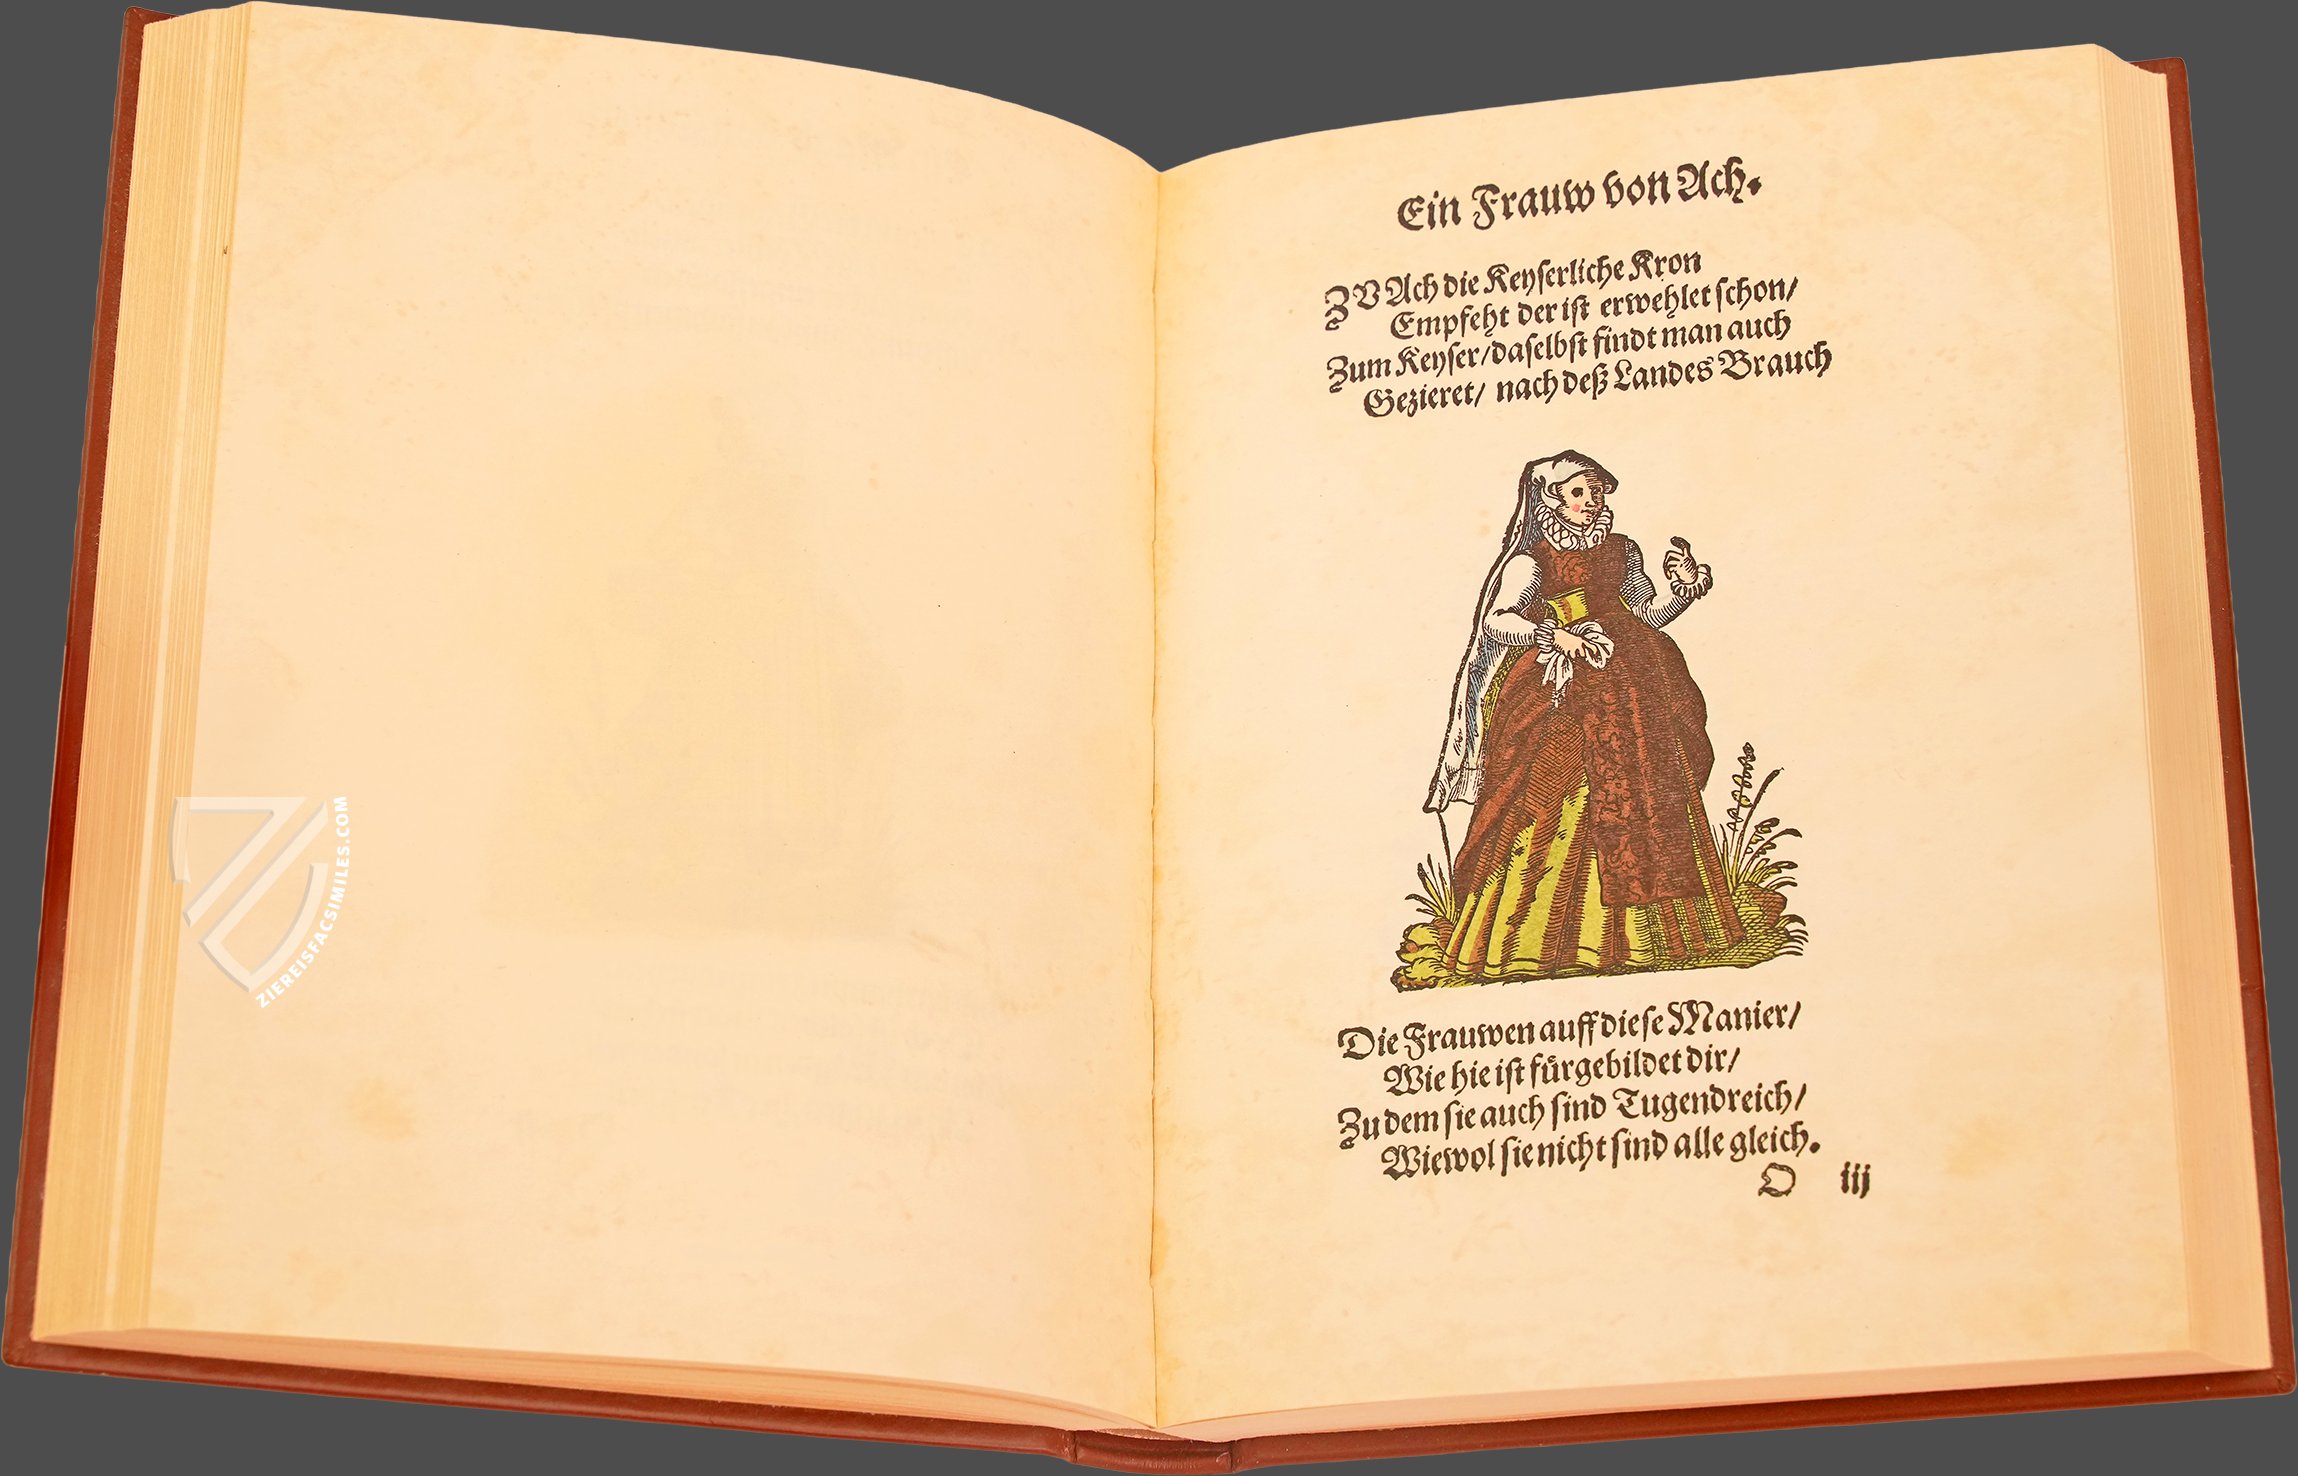 Ein Frauw von Ach.
ZV Ach die Keyserliche Kron
Empfeht der ist erwehlet schon/
Zum Keyser/ daselbst findt man auch
Gezieret/ nach deß Landes Brauch
Die Frauwen auff diese Manier/
Wie hie ist fürgebildet dir/
Zu dem sie auch sind Tugendreich/
Wiewol sie nicht sind alle gleich.
O iij
ZIEREISFACSIMILES.COM